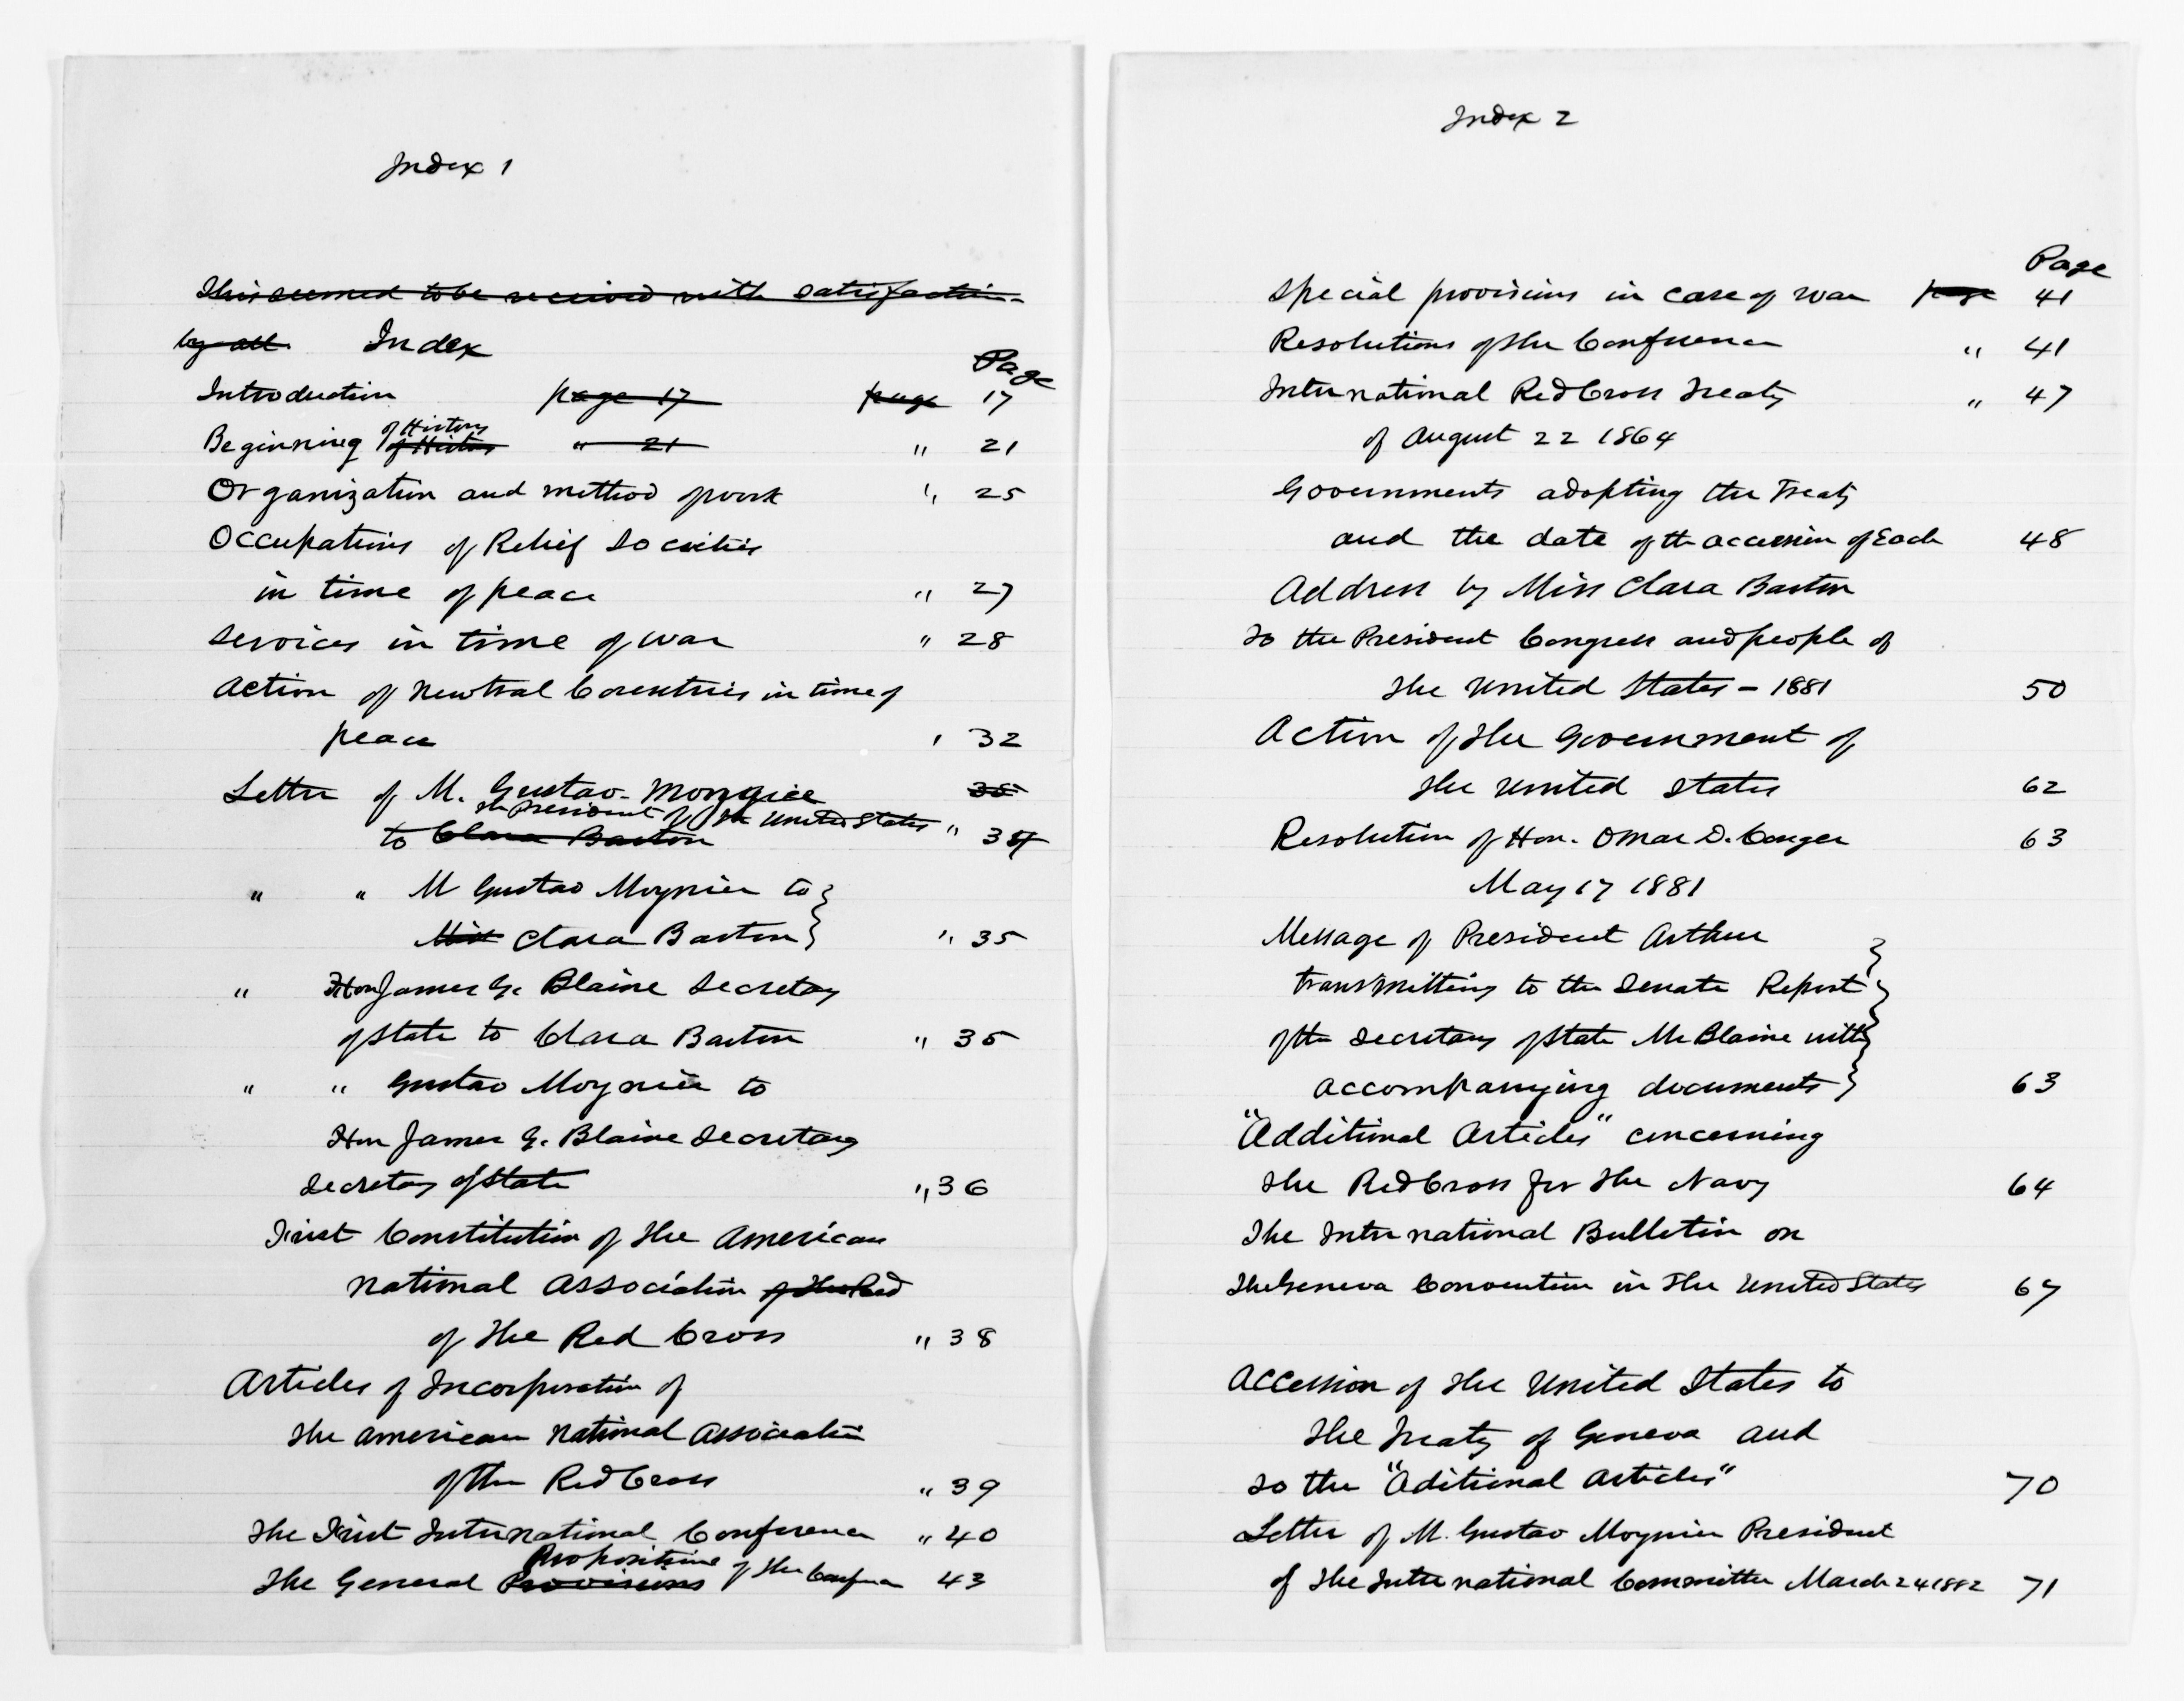 Index 1
This seemed to be received with satisfaction
by all. Index
Page
Introduction page 17 page 17
of History
Beginning of History " 21 " 21
Organization and method of work " 25
Occupations of Relief Societies
in time of peace " 27
Services in time of war " 28
Action of Newtral Countries in time of
peace " 32
Letter of M. Gustav
the President of the United States
to Clara Barton " 34
" " M Gustav Moynier to
Miss Clara Barton " 35
" Hon James G. Blaine Secretary
of State to Clara Barton " 35
" " Gustav Moynier to
Hon James G. Blaine Secretary
Secretary of State " 36
First Constitution of the American
National Association of the Red
of the Red Cross " 38
Articles of Incorporation of
the American National Association
of the Red Cross " 39
The First International Conference " 40
Propositions
The General Provisions of the Confer 43
Index 2
Page
Special provisions in case of war page 41
Resolutions of the Conference " 41
International Red Cross Treaty " 47
of August 22 1864
Governments adopting the Treaty
and the date of the accession of Each 48
Address by Miss Clara Barton
to the President Congress and people of
the United States – 1881 50
Action of the Government of
the United States 62
Resolution of Hon. Omar D. Conger 63
May 17 1881
Message of President Arthur
transmitting to the Senate Report
of the Secretary of State Mr Blaine with
accompanying documents 63
"Additional Articles" concerning
the Red Cross for the Navy 64
The International Bulletin on
The Geneva Convention in the United States 67
Accession of the United States to
the Treaty of Geneva and
to the "Aditional Articles" 70
Letter of M. Gustav Moynier President
of the International Committee March 24 1882 71